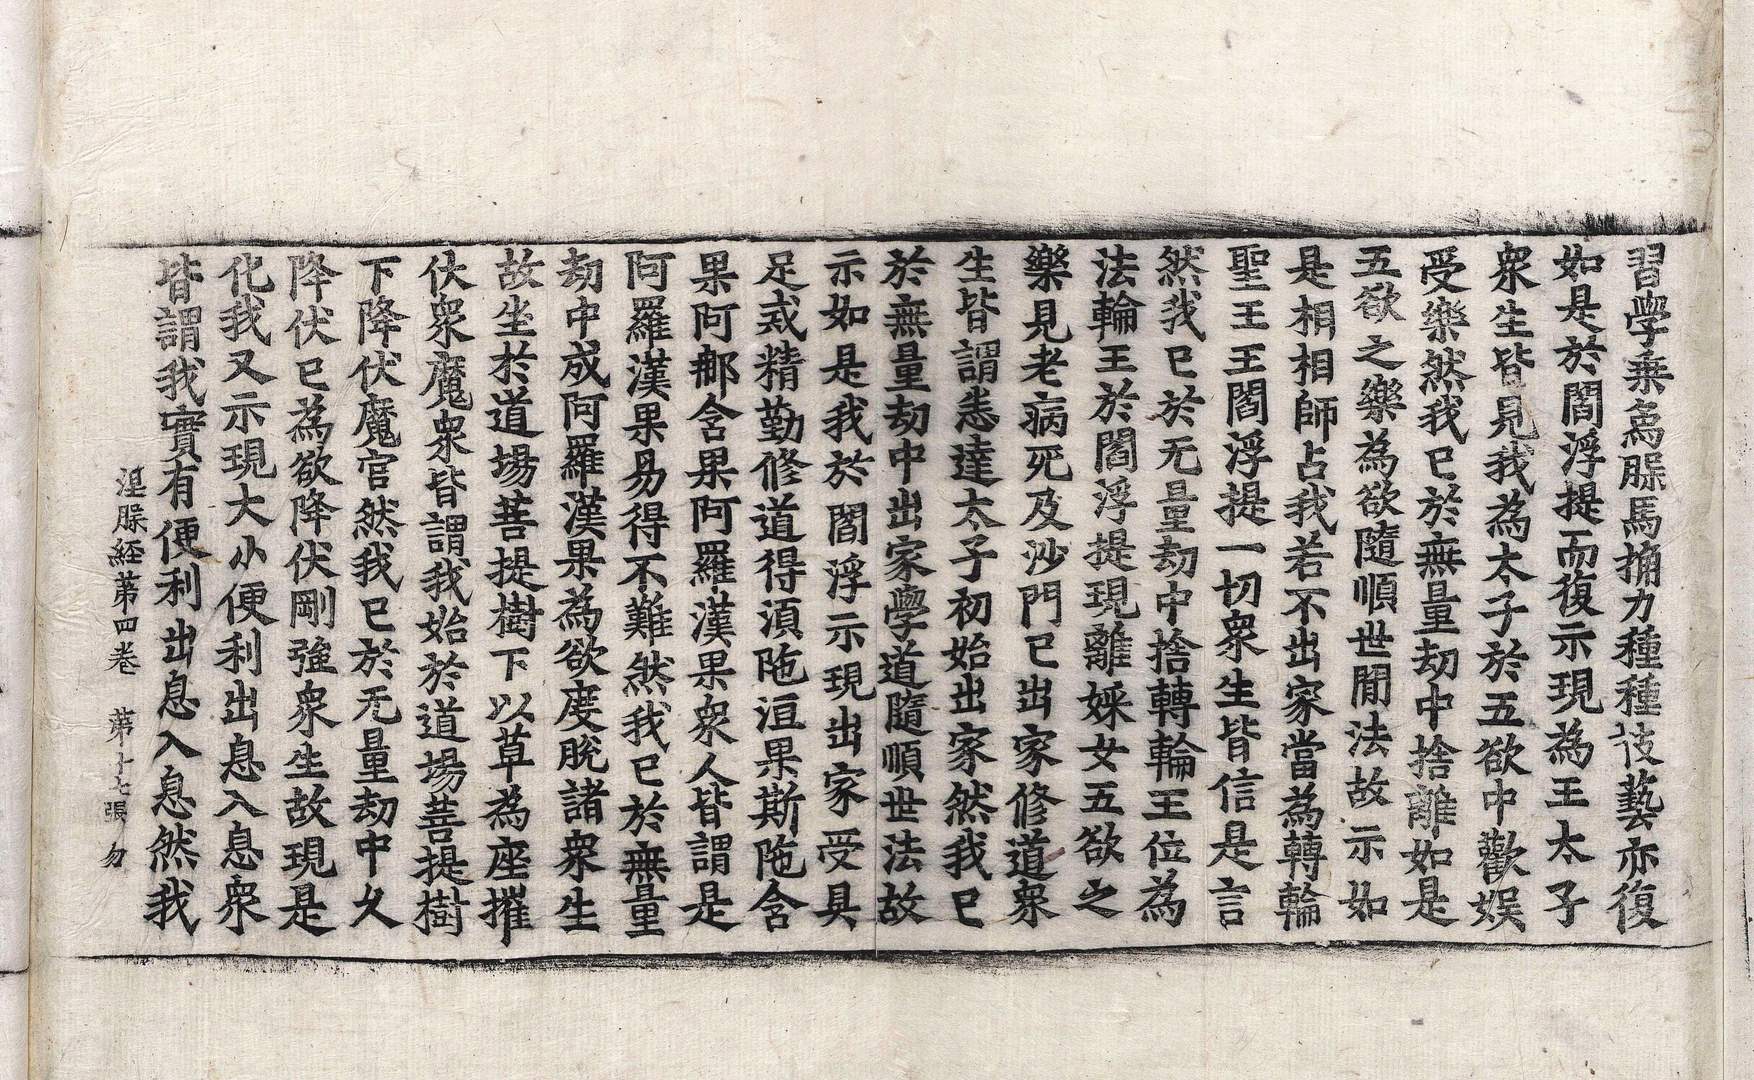 習學乗烏腂馬捔力種種伎藝亦復
如是於閻浮提而復示現為王太子
衆生皆見我為太子於五欲中歡娱
受樂然我已於無量劫中捨離如是
五欲之樂為欲隨順世間法故示如
是相相師占我若不出家當為轉輪
聖王王閻浮提一切衆生皆信是言
然我已於无量劫中捨轉輪王位為
法輪王於閻浮提現離婇女五欲之
樂見老病死及沙門已出家修道衆
生皆謂悉達太子初始出家然我已
於無量劫中出家學道隨順世法故
示如是我於閻浮示現出家受具
足戒精勤修道得湏陁洹果斯陁含
果阿那含果阿羅漢果衆人皆謂是
阿羅漢果易得不難然我已於無量
劫中成阿羅漢果為欲度脫諸衆生
故坐於道場菩提樹下以草為座摧
伏衆魔衆皆謂我始於道場菩提樹
下降伏魔官然我已於无量劫中久
降伏已為欲降伏剛強衆生故現是
化我又示現大小便利出息入息衆
皆謂我實有便利出息入息然我
涅腂経苐四卷 苐十七張 勿